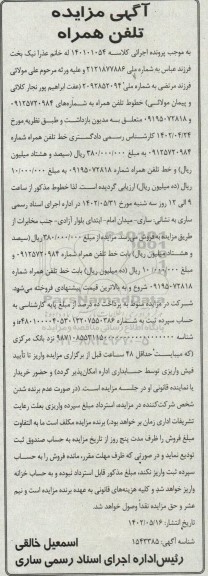 آگهی مزایده
تلفن همراه
به موجب پرونده اجرائی کلاسه ۱۴۰۱۰۱۰۵۴ له خانم عذرا نیک بخت
فرزند عباس به شماره ملی ۲۱۲۱۸۷۷۸۸۶ و علیه ورثه مرحوم علی مولائی
فرزند مرتضی به شماره ملی ۲۰۹۲۸۵۲۰۹۴ (عفت ابراهیم پور نجار کلائی
و پیمان مولائی) خطوط تلفن همراه به شماره‌های ۰۹۱۲۵۷۲۰۹۸۴ و
۰۹۱۱۹۵۰۷۲۸۱۸ متعلق به مدیون بازداشت و طبق نظریه مورخ
۱۴۰۲/۰۴/۲۴ کارشناس رسمی دادگستری خط تلفن همراه شماره
۰۹۱۲۵۷۲۰۹۸۴ به مبلغ ۳۸۰/۰۰۰/۰۰۰ ریال (سیصد و هشتاد میلیون
ریال) و خط تلفن همراه شماره ۰۹۱۱۹۵۰۷۲۸۱۸ به مبلغ ۱۰/۰۰۰/۰۰۰
ریال (ده میلیون ریال) ارزیابی گردیده است. لذا خطوط مذکور از ساعت
۹ الی ۱۲ روز سه شنبه مورخ ۱۴۰۲/۰۵/۳۱ در اداره اجرای اسناد رسمی
ساری به نشانی: ساری- میدان امام- ابتدای بلوار آزادی- جنب مخابرات از
طریق مزایده به فروش میرسد. مزایده از مبلغ ۳۸۰/۰۰۰/۰۰۰ ریال (سیصد
و هشتاد میلیون ریال) بابت خط تلفن همراه شماره ۰۹۱۲۵۷۲۰۹۸۴ و
مبلغ ۱۰/۰۰۰/۰۰۰ ریال (ده میلیون ریال) بابت خط تلفن همراه شماره
۰۹۱۱۹۵۰۷۲۸۱۸ شروع و به بالاترین قیمت پیشنهادی فروخته می‌شود.
شرکت در مزایده منوط به پرداخت ده درصد از مبلغ پایه کارشناسی به
حساب سپرده ثبت به شماره
شناسه نزد بانک مرکزی
(که میبایست حداقل ۴۸ ساعت قبل از برگزاری مزایده واریز تا تأیید
فیش واریزی توسط حسابداری اداره امکان‌پذیر گردد) و حضور خریدار
یا نماینده قانونی او در جلسه مزایده است. (در صورت عدم برنده شدن
شخص شرکت‌کننده در مزایده، استرداد مبلغ سپرده واریزی بعلت رعایت
تشریفات اداری زمان بر خواهد بود) برنده مزایده مکلف است ما به التفاوت
مبلغ فروش را ظرف مدت پنج روز از تاریخ مزایده به حساب صندوق ثبت
تودیع نماید و در صورتی که ظرف مهلت مقرر، مانده فروش را به حساب
سپرده ثبت واریز نکند، مبلغ مذکور قابل استرداد نبوده و به حساب خزانه
واریز خواهد شد و کلیه هزینه‌های قانونی به عهده برنده مزایده است و نیم
عشر و حق مزایده نقداً وصول خواهد شد.
تاریخ انتشار: ۱۴۰۲/۰۵/۱۶
شناسه آگهی: ۱۵۴۳۳۸۵
اسمعیل خالقی
رئیس اداره اجرای اسناد رسمی ساری